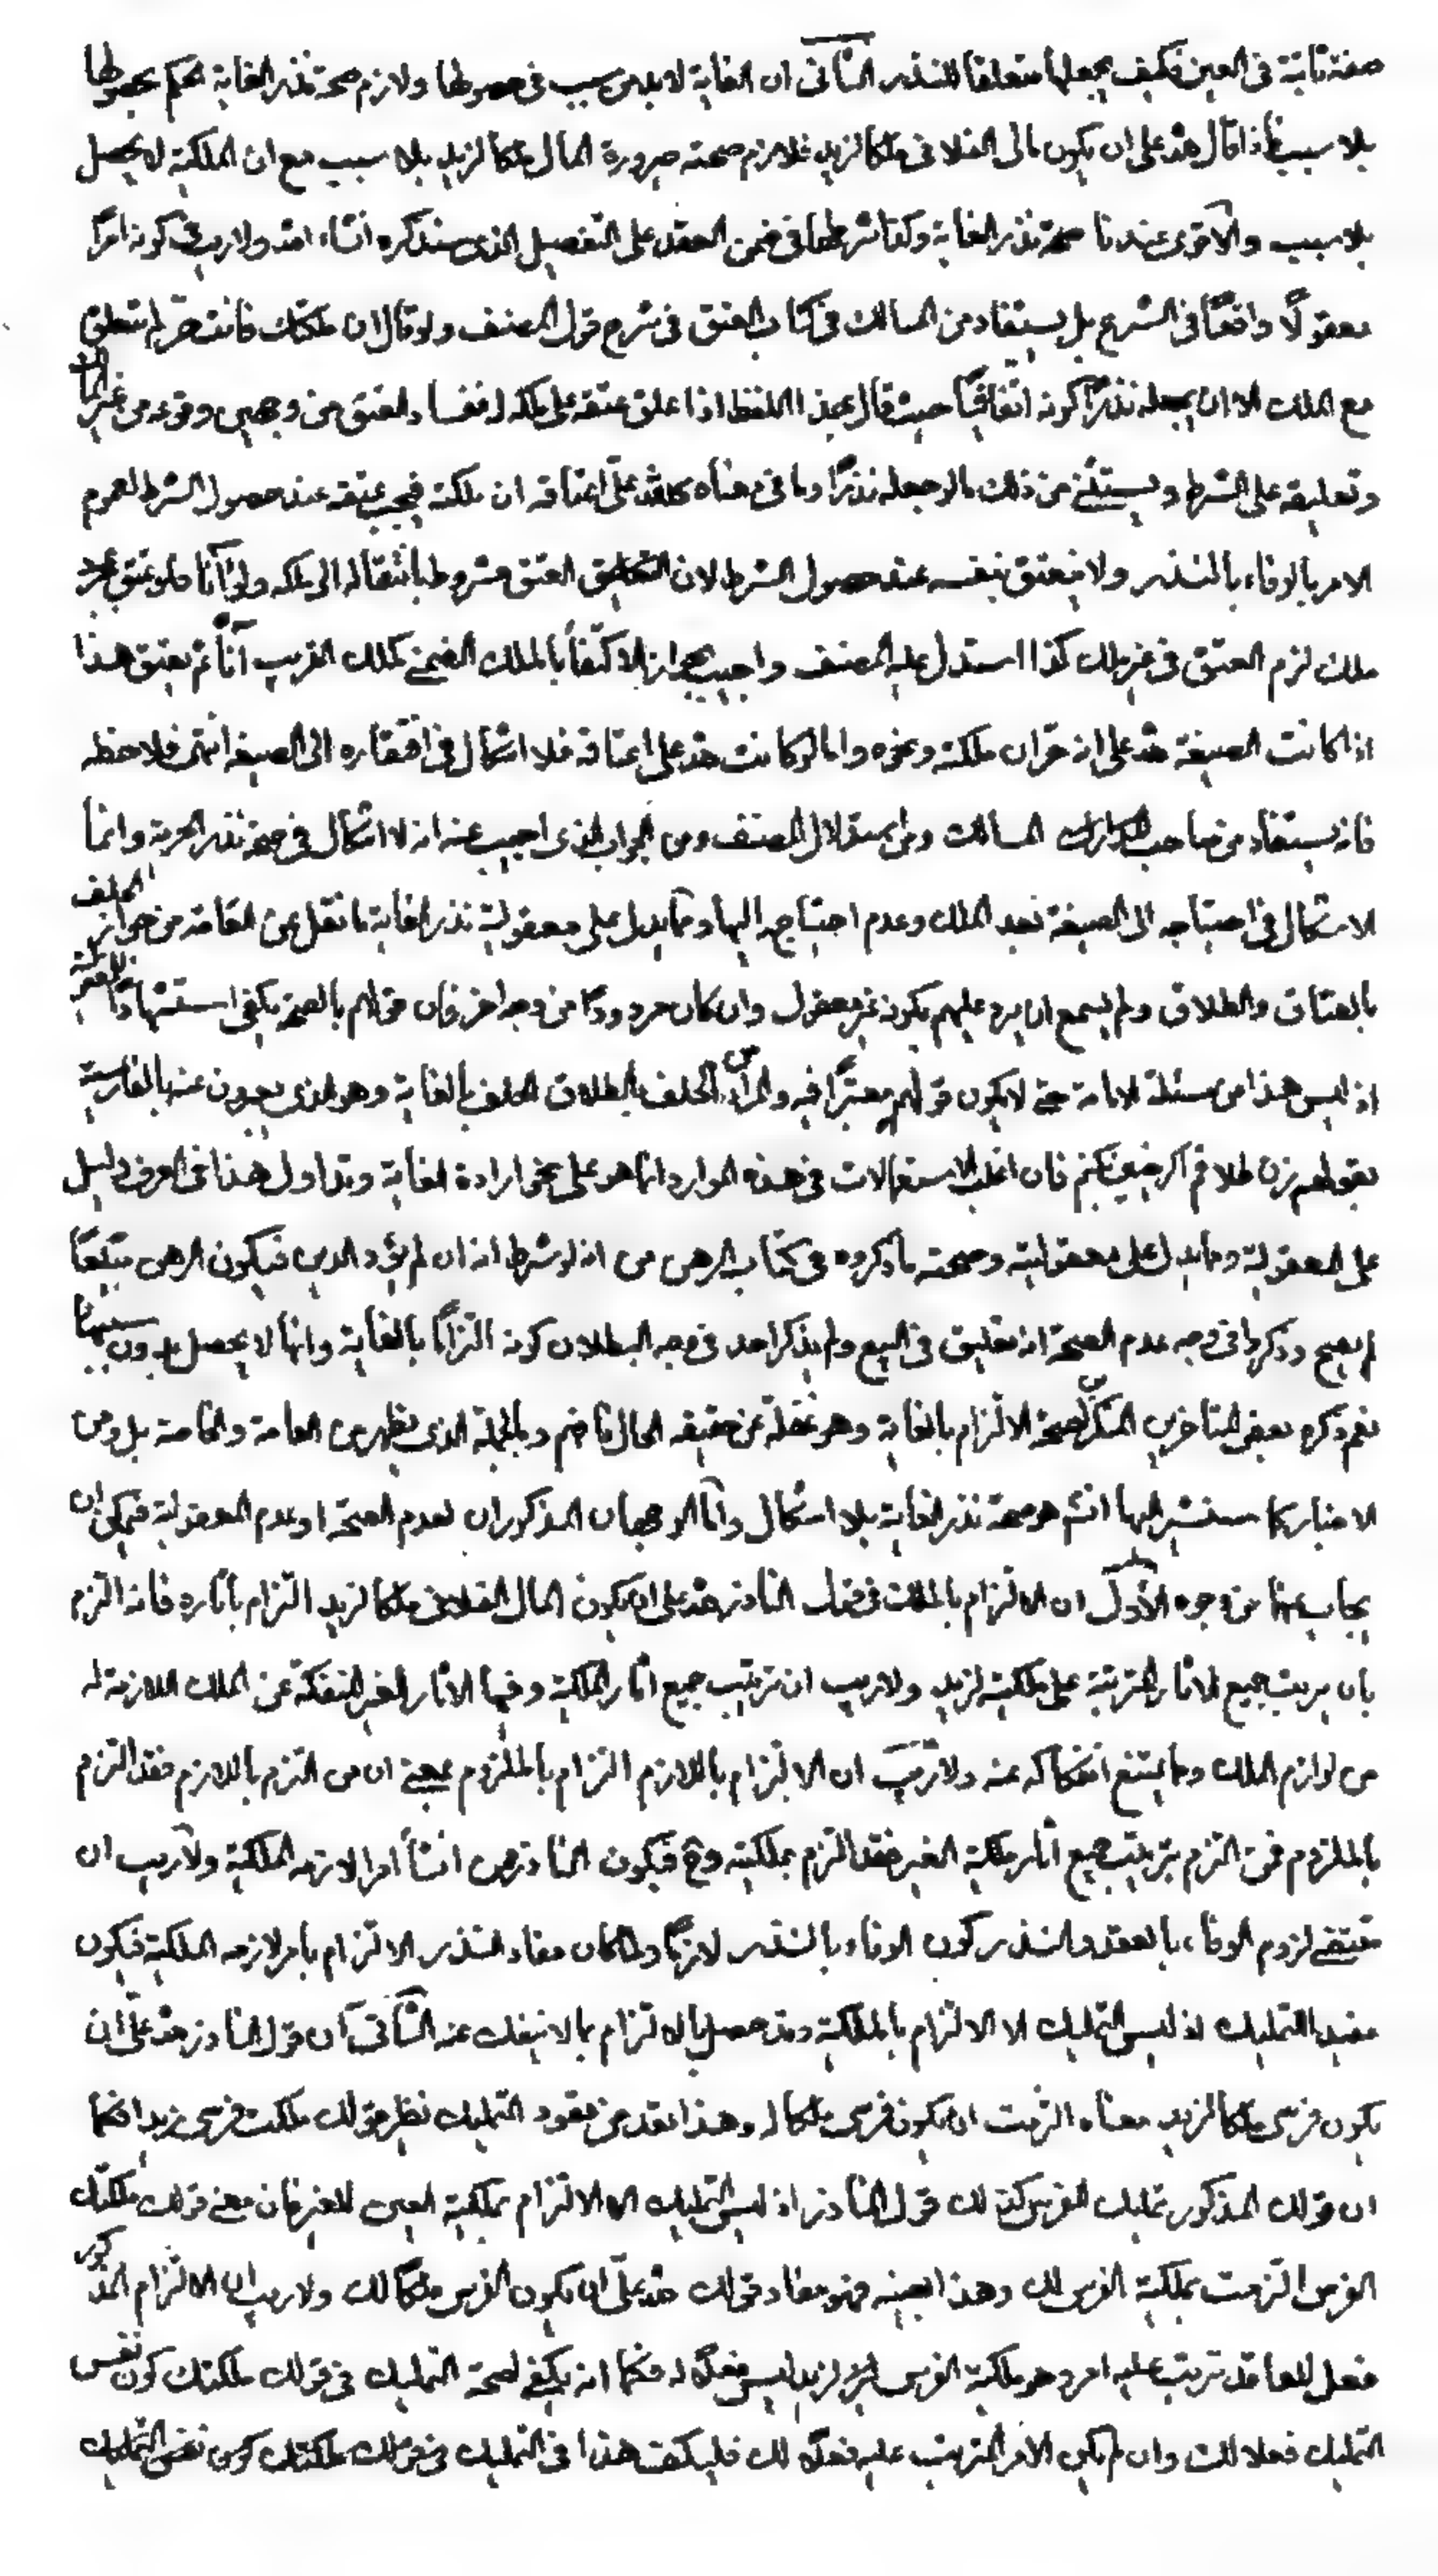 صفة ثابتة فى العين فكيف يجعلها متعلقا للنذر الثانى ان الغاية لا بد من سبب فى حصولها ولازم صحة نذر الغاية الحكم بحصولها
بلا سبب فاذا قال لله على ان يكون مالى الفلانى ملكا لزيد فلازم صحته صيرورة المال ملكا لزيد بلا سبب مع ان الملكية لا يحصل
بلا سبب والاقوى عندنا صحة نذر الغاية وكذا شرطها فى ضمن العقد على التفصيل الذى سنذكره انشاء الله ولا ريب فى كونه امرا
معقولاً واقعًا فى الشرع بل يستفاد من المسالك فى كتاب العتق فى شرح قول المصنف ولو قال ان ملكتك فانت حر لم ينعتق
مع الملك الا ان يجعله نذرًا كونه اتفاقيًا حيث قال بهذا اللفظ اذا علق عتقه على ملكه له فسا د العتق من وجهين وقوعه من غير المالك
وتعليقه على الشرط ويستثنى من ذلك ما لو جعله نذرًا وما فى معناه كلله علىّ اعتاقه ان ملكته فيجب عتقه عند حصول الشرط لعموم
الامر بالوفاء بالنذر ولا ينعتق بنفسه عند حصول الشرط لان العتق مشروط بانتقاله الى ملكه ولو آنًا فلو عتق بمجرد
ملك لزم العتق فى غير ملك كذا استدل عليه المصنف واجيب بجواز الاكتفاء بالملك الضمنى كملك القريب آنًا ثم يعتق هذا
اذا كانت الصيغة لله على انه حر ان ملكته ونحوه واما لو كانت لله على اعتاقه فلا اشكال فى افتقاره الى الصيغة انتهى فلاحظه
فانه يستفاد من صاحب المسالك ومن استدلال المصنف ومن الجواب الذى اجيب عنه انه لا اشكال فى صحة نذر الحرية وانما
الاشكال فى احتياجه الى الصيغة بعد الملك وعدم احتياجه اليها ومما يدل على معقولية نذر الغاية ما نقل عن العامة من جواز الحلف
بالعتاق والطلاق ولم يسمع ان يرد عليهم بكونه غير معقول وان كان مردودًا من وجه اخر فان قولهم بالصحة يكفى استشهادًا للمعقولية
اذ ليس هذا من مسئلة الامامة حتى لا يكون قولهم معتبرًا فيه والمراد من الحلف بالطلاق الحلف بالغاية وهو الذى يعبرون عنه بالفارسية
بقولهم زن طلاقم اكر چنين نكنم فان اغلب الاستعمالات فى هذه الموارد انما هو على نحو ارادة الغاية وتداول هذا فى العرف دليل
على المعقولية ومما يدل على معقوليته وصحته ما ذكروه فى كتاب الرهن من انه لو شرط انه ان لم يؤد الدين فيكون الرهن مبيعًا
لم يصح وذكروا فى وجه عدم الصحة انه تعليق فى البيع ولم يذكر احد فى وجه البطلان كونه التزامًا بالغاية وانها لا يحصل بدون سببها
نعم ذكره بعض المتاخرين المنكر لصحة الالتزام بالغاية وهو غفلة عن حقيقة الحال فافهم وبالجملة الذى يظهر من العامة والخاصة بل ومن
الاخبار كما سنشير اليها انشاء هو صحة نذر الغاية بلا اشكال وامّا الوجهان المذكوران لعدم الصحة او عدم المعقولية فيمكن ان
يجاب عنها من وجوه الأول ان الالتزام بالملك فى قول الناذر لله على ان يكون المال الفلانى ملكا لزيد التزام باثاره فانه التزم
بان يرتب جميع الاثار المترتبة على ملكية لزيد ولا ريب ان ترتيب جميع اثار الملكية وفيها الاثار الغير المنفكة عن الملك اللازمة له
من لوازم الملك ومما يمتنع انفكاكه عنه ولا ريب ان الالتزام باللازم التزام بالملزوم بمعنى ان من التزم باللازم فقد التزم
بالملزوم فمن التزم بترتيب جميع اثار ملكية الغير فقد التزم بملكيته وح فيكون الناذر من انشأ امرا لازمه الملكية ولا ريب ان
مقتضى لزوم الوفاء بالعقد والنذر كون الوفاء بالنذر لازمًا ولما كان مفاد النذر الالتزام بامر لازمه الملكية فيكون
مفيد التمليك اذ ليس التمليك الا الالتزام بالملكية وقد حصل بالالتزام بما لا ينفك عنه الثانى ان قول الناذر لله علىّ ان
يكون فرسى ملكا لزيد معناه التزمت ان يكون فرسى ملكا له وهذا عقد من عقود التمليك نظير قولك ملكت فرسى زيدا فكما
ان قولك المذكور تمليك الفرس كذلك قول الناذر اذ ليس التمليك الا الالتزام بملكية العين للغير فان معنى قولك ملكتك
الفرس التزمت بملكية الفرس لك وهذا بعينه فهو مفاد قولك لله علىّ ان يكون الفرس ملكًا لك ولا ريب ان الالتزام المذكور
فعل للعاقد ترتب عليه امر وهو ملكية الفرس لزيد ليس فعلاً له فكما انه يكفى لصحة التمليك فى قولك ملكتك كون نفس
التمليك فعلا لك وان لم يكن الامر المترتب عليه فعلاً لك فليكف هذا فى التمليك فى قولك ملكتك كون نفس التمليك